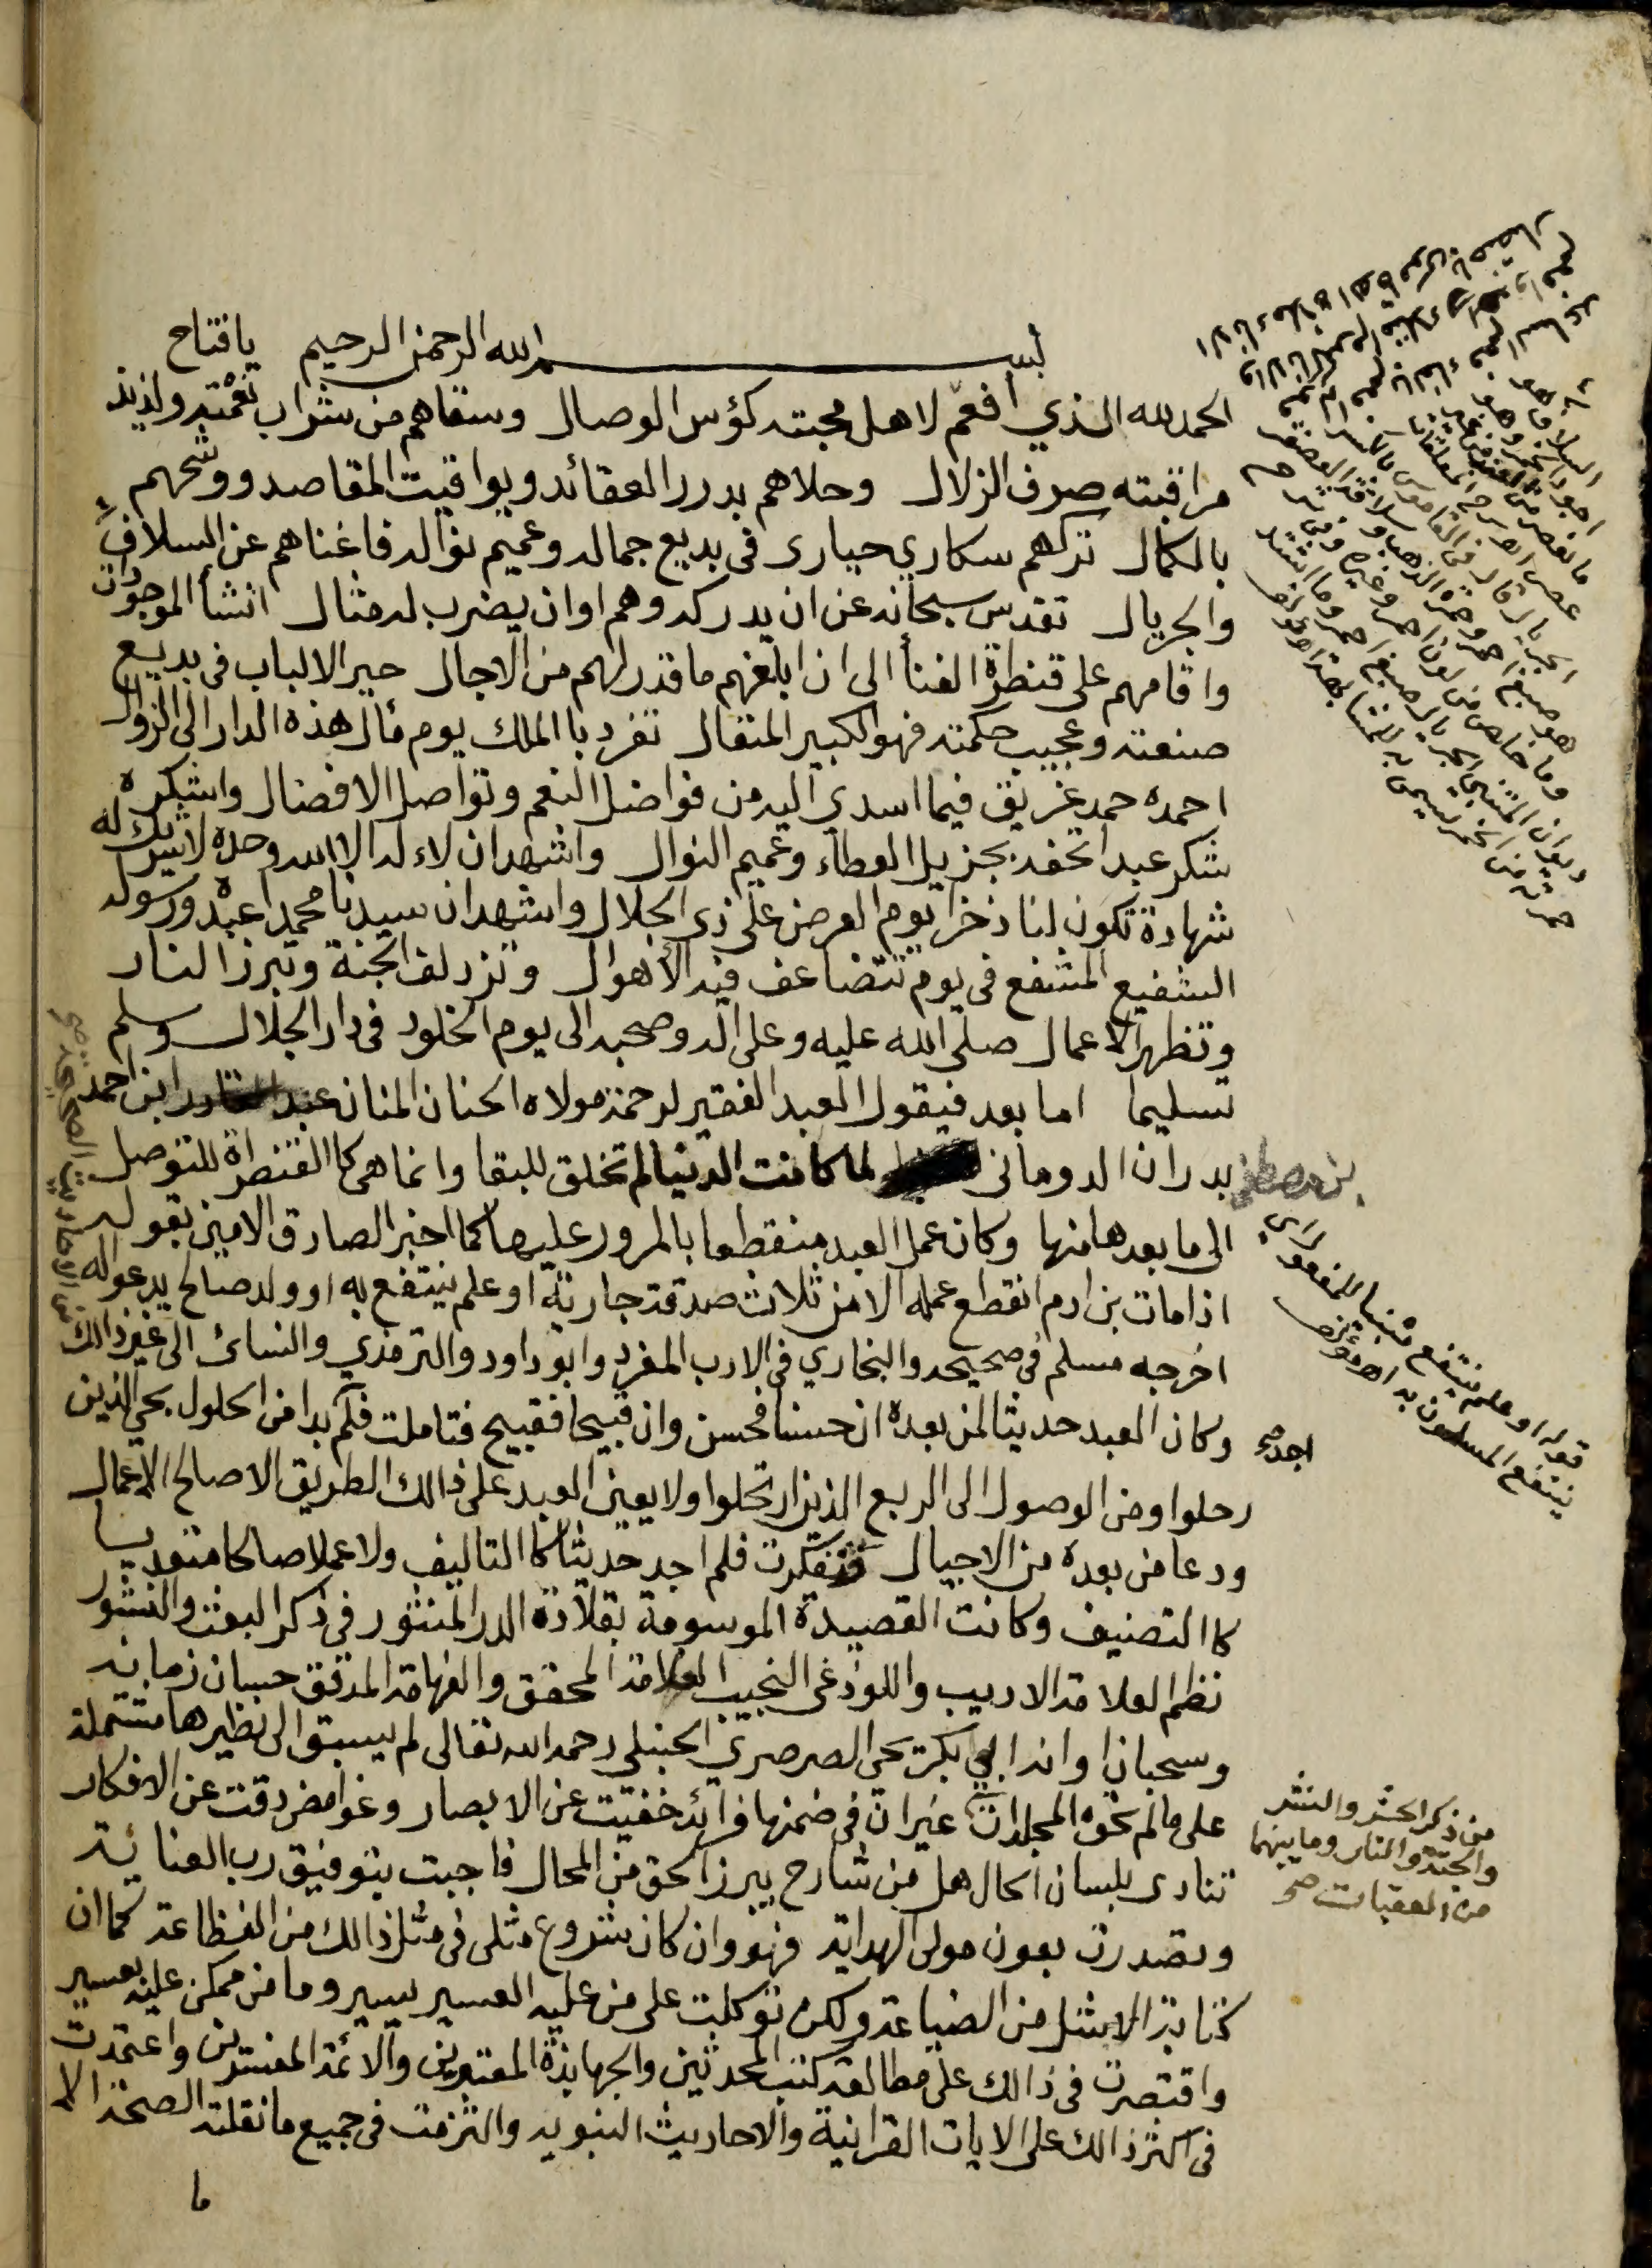 بسم الله الرحمن الرحيم يافتاح
الحمد لله الذي أفعم لاهل محبته كؤس الوصال وسقاهم من شراب نعمته ولذيذ
مراقبته صرف الزلال وحلاهم بدرر العقائد ويواقيت المقاصد ووشحهم
بالكمال تركهم سكارى حيارى فى بديع جماله وعميم نواله فاغناهم عن السلاف
والجريال تقدس سبحانه عن ان يدركه وهم او ان يضرب له مثال انشأ الموجودات
واقامهم على قنطرة الفنأ الى ان ابلغهم ما قدر لهم من الاجال حير الالباب فى بديع
صنعته وعجيب حكمته فهو الكبير المتعال تفرد با الملك يوم مأل هذه الدار الى الزوال
احمده حمد غريق فيما اسدي اليه من فواضل النعم وتواصل الافضال واشكره
شكر عبد اتحفه بجزيل العطاء وعميم النوال واشهد ان لاءله الا الله وحده لا شريك له
شهادة تكون لنا ذخرا يوم العرض على ذي الجلال واشهد ان سيدنا محمدا عبده ورسوله
الشفيع المشفع فى يوم تتضاعف فيه الأهوال وتزدلف الجنة وتبرز النار
وتظهر الاعمال صلى الله عليه وعلى اله وصحبه الى يوم الخلود فى دار الجلال وسلم
تسليما اما بعد فيقول العبد الفقير لرحمة مولاه الحنان المنان عبد القادر ابن احمد
بن مصطفى بدران الدومانى لما كانت الدنيا لم تخلق للبقا وانما هى كا القنطرة للتوصل
الى ما بعدها منها وكان عمل العبد منقطعا بالمرور عليها كما اخبر الصادق الامين بقوله
اذا مات بن ادم انقطع عمله الا من ثلاث صدقة جارية او علم ينتفع به او ولد صالح يدعو له
اخرجه مسلم فى صحيحه والبخاري فى الادب المفرد وابو داود والترمذي والنسائ الى غير ذالك
من الاحاديث الصحيحة صح
وكان العبد حديثا لمن بعده ان حسنا فحسن وان قبيحا فقبيح فتاملت فلم اجد صح بدا من الحلول بحي الذين
رحلوا ومن الوصول الى الربع الذين ارتحلوا ولا يعين العبد على ذالك الطريق الا صالح الاعمال
ودعا من بعده من الاجيال فتفكرت فلم اجد حديثا كا التاليف ولا عملا صالحا متعديا
كا التصنيف وكانت القصيدة الموسومة بقلادة الدر المنثور فى ذكر البعث والنشور
نظم العلامة الاديب واللوذعى النجيب العلامة المحقق والفهامة المدقق حسان زمانه
وسحبان اوانه ابى بكر يحى الصرصري الحنبلى رحمه الله تعالى لم يسبق الى نظيرها مشتملة
على ما لم تحوه المجلدات غير ان فى ضمنها فرائد خفيت عن الابصار وغوامض دقت عن الافكار
من ذكر الحشر والنشر
والجنة والنار وما بينهما
من العقبات صح
تنادى بلسان الحال هل من شارح يبرز الحق من المحال فاجبت بتوفيق رب العناية
وتصدرت بعون مولى الهداية فهو وان كان شروع مثلى فى مثل ذالك من الفظاعة كما ان
كتابة الاشل من الضياعة ولكن توكلت على من عليه العسير يسير وما من ممكن عليه بعسير
واقتصرت فى ذالك على مطالعة كتب المحدثين والجهابذة المعتبرين والائمة المفسرين واعتمدت
فى اكثر ذالك على الايات القرانية والاحاديث النبويه والتزمت فى جميع ما نقلته الصحة الا
ما
قوله او علم ينتفع مبنيا للمفعول اي
ينتفع المسلمون به اه مؤلفه